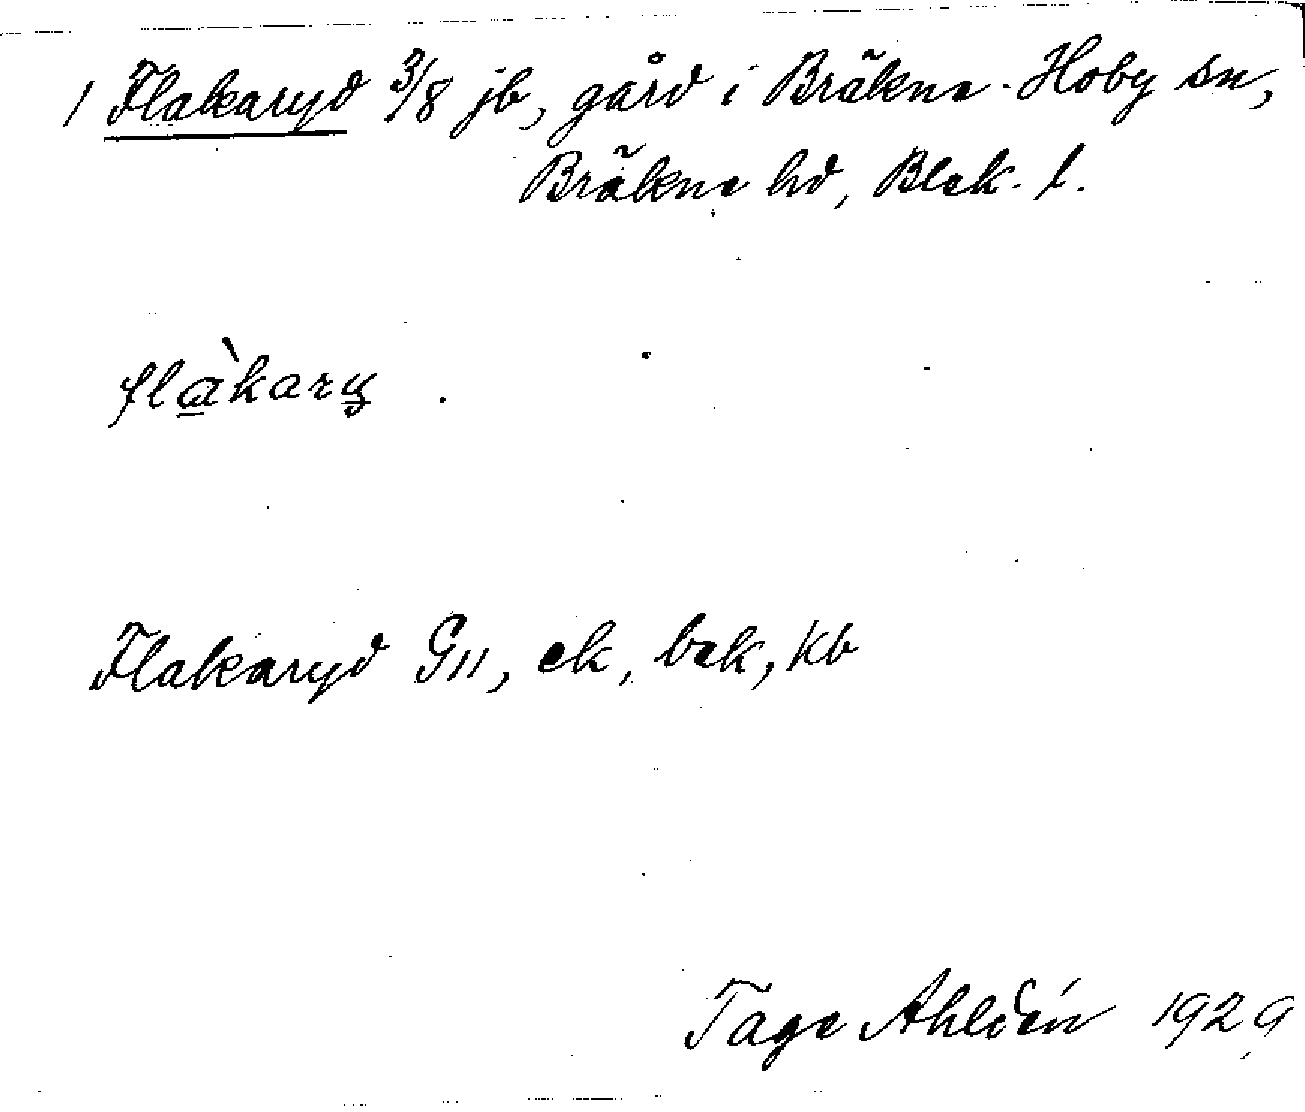 1 Flakaryd 3/8 jb, gård i Bräkne-Hoby sn,
Bräkne hd, Blek. l.
flà̠kary̠
Flakaryd G11, ek, bek, kb
Tage Ahldén 1929